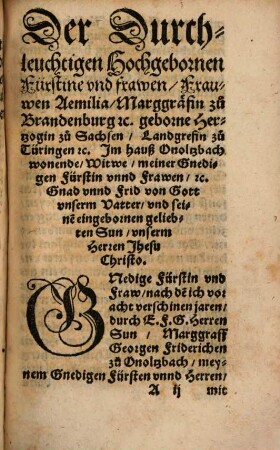 Der Durch⸗
leuchtigen Hochgebornen
Fürstine vnd frawen/ Frau⸗
wen Aemilia/ Marggräfin zů
Brandenburg ꝛc. geborne Her⸗
tzogin zů Sachsen/ Landgrefin zů
Türingen ꝛc. Im hauß Onoltzbach
wonende/ Witwe/ meiner Gnedi⸗
gen Fürstin vnnd Frawen/ ꝛc.
Gnad vnnd Frid von Gott
vnserm Vatter/ vnd sei⸗
nē eingebornen gelieb⸗
ten Sun/ vnserm
Herren Jhesu
Christo.
GNedige Fürstin vnd
Fraw/ nach dē ich vor
acht verschinen jaren/
durch E. F. G. Herren
Sun / Marggraff
Georgen Friderichen
zů Onoltzbach/ mey⸗
nem Gnedigen Fürsten vnnd Herren/
A ij mit